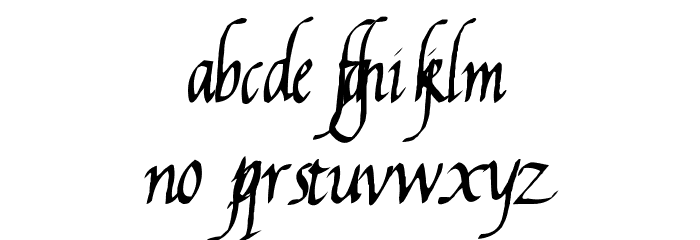 abcde fghijklm
no pqrstuvwxyz